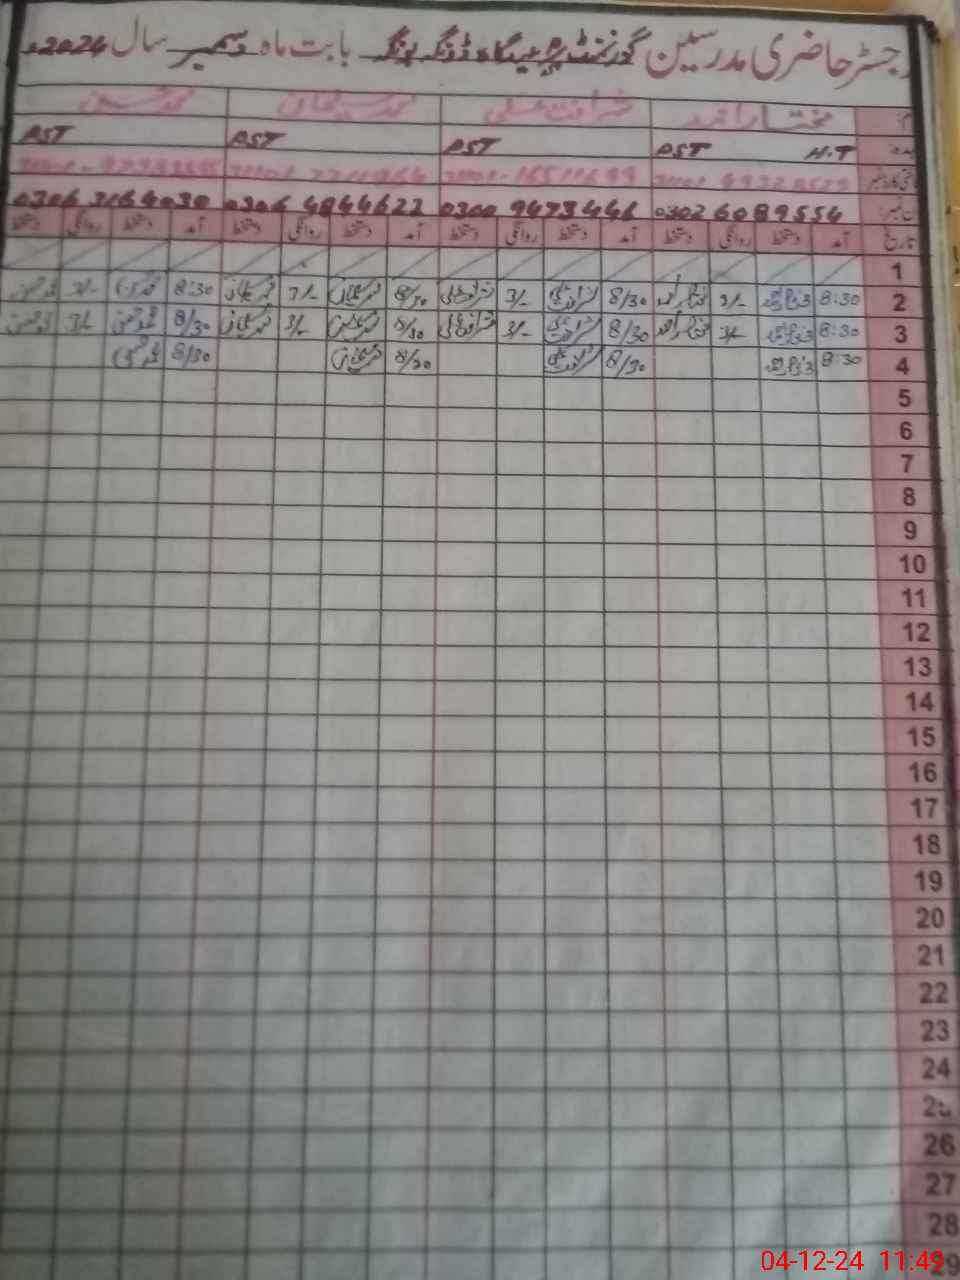 رجسٹر حاضری مدرسین گورنمنٹ بابت ماہ دسمبر سال 2024ء
مختار احمد شرافت علی محمد سلیمان محمد محسن
H.T PST PST PST PST
0302 6089554 0300 9473446 0306 4844622 0306 3164030
تاریخ آمد دستخط روانگی دستخط آمد دستخط روانگی دستخط آمد دستخط روانگی دستخط آمد دستخط روانگی دستخط
1
2 8:30 مختار احمد 3/- مختار احمد 8/30 شرافت علی 3/- شرافت علی 8/30 محمد سلیمان 3/- محمد سلیمان 8:30 محمد محسن 3/- محمد محسن
3 8:30 مختار احمد 3/- مختار احمد 8/30 شرافت علی 3/- شرافت علی 8/30 محمد سلیمان 3/- محمد سلیمان 8/30 محمد محسن 3/- محمد محسن
4 8:30 مختار احمد 8/30 شرافت علی 8/30 محمد سلیمان 8/30 محمد محسن
5
6
7
8
9
10
11
12
13
14
15
16
17
18
19
20
21
22
23
24
25
26
27
28
29
04-12-24 11:49